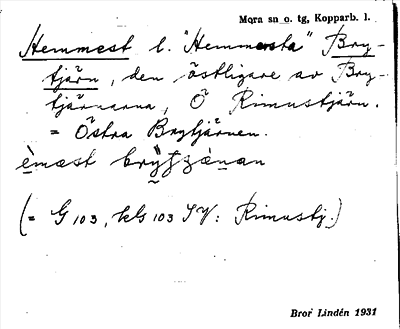 Mora sn o. tg, Kopparb. l.
Hemmest l. "Hemmersta" Bry-
tjärn, den östligare av Bry-
tjärnarna, Ö Rimustjärn.
= Östra Brytjärnen.
(= G 103, kls 103 SV: Rimustj.)
Bror Lindén 1931